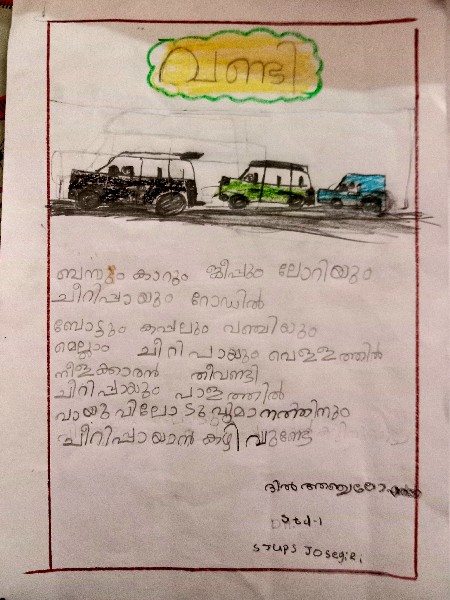 വണ്ടി
ബസും കാറും ജീപ്പും ലോറിയും
ചീറിപ്പായും റോഡിൽ
ബോട്ടും കപ്പലും വഞ്ചിയും
മെല്ലാം ചീറിപായും വെള്ളത്തിൽ
നീളക്കാരൻ തീവണ്ടി
ചീറിപ്പായും പാളത്തിൽ
വായുവിലോടും വിമാനത്തിനും
ചീറിപ്പായാൻ കഴിവുണ്ടേ
Std-1
SJUPS Josegiri